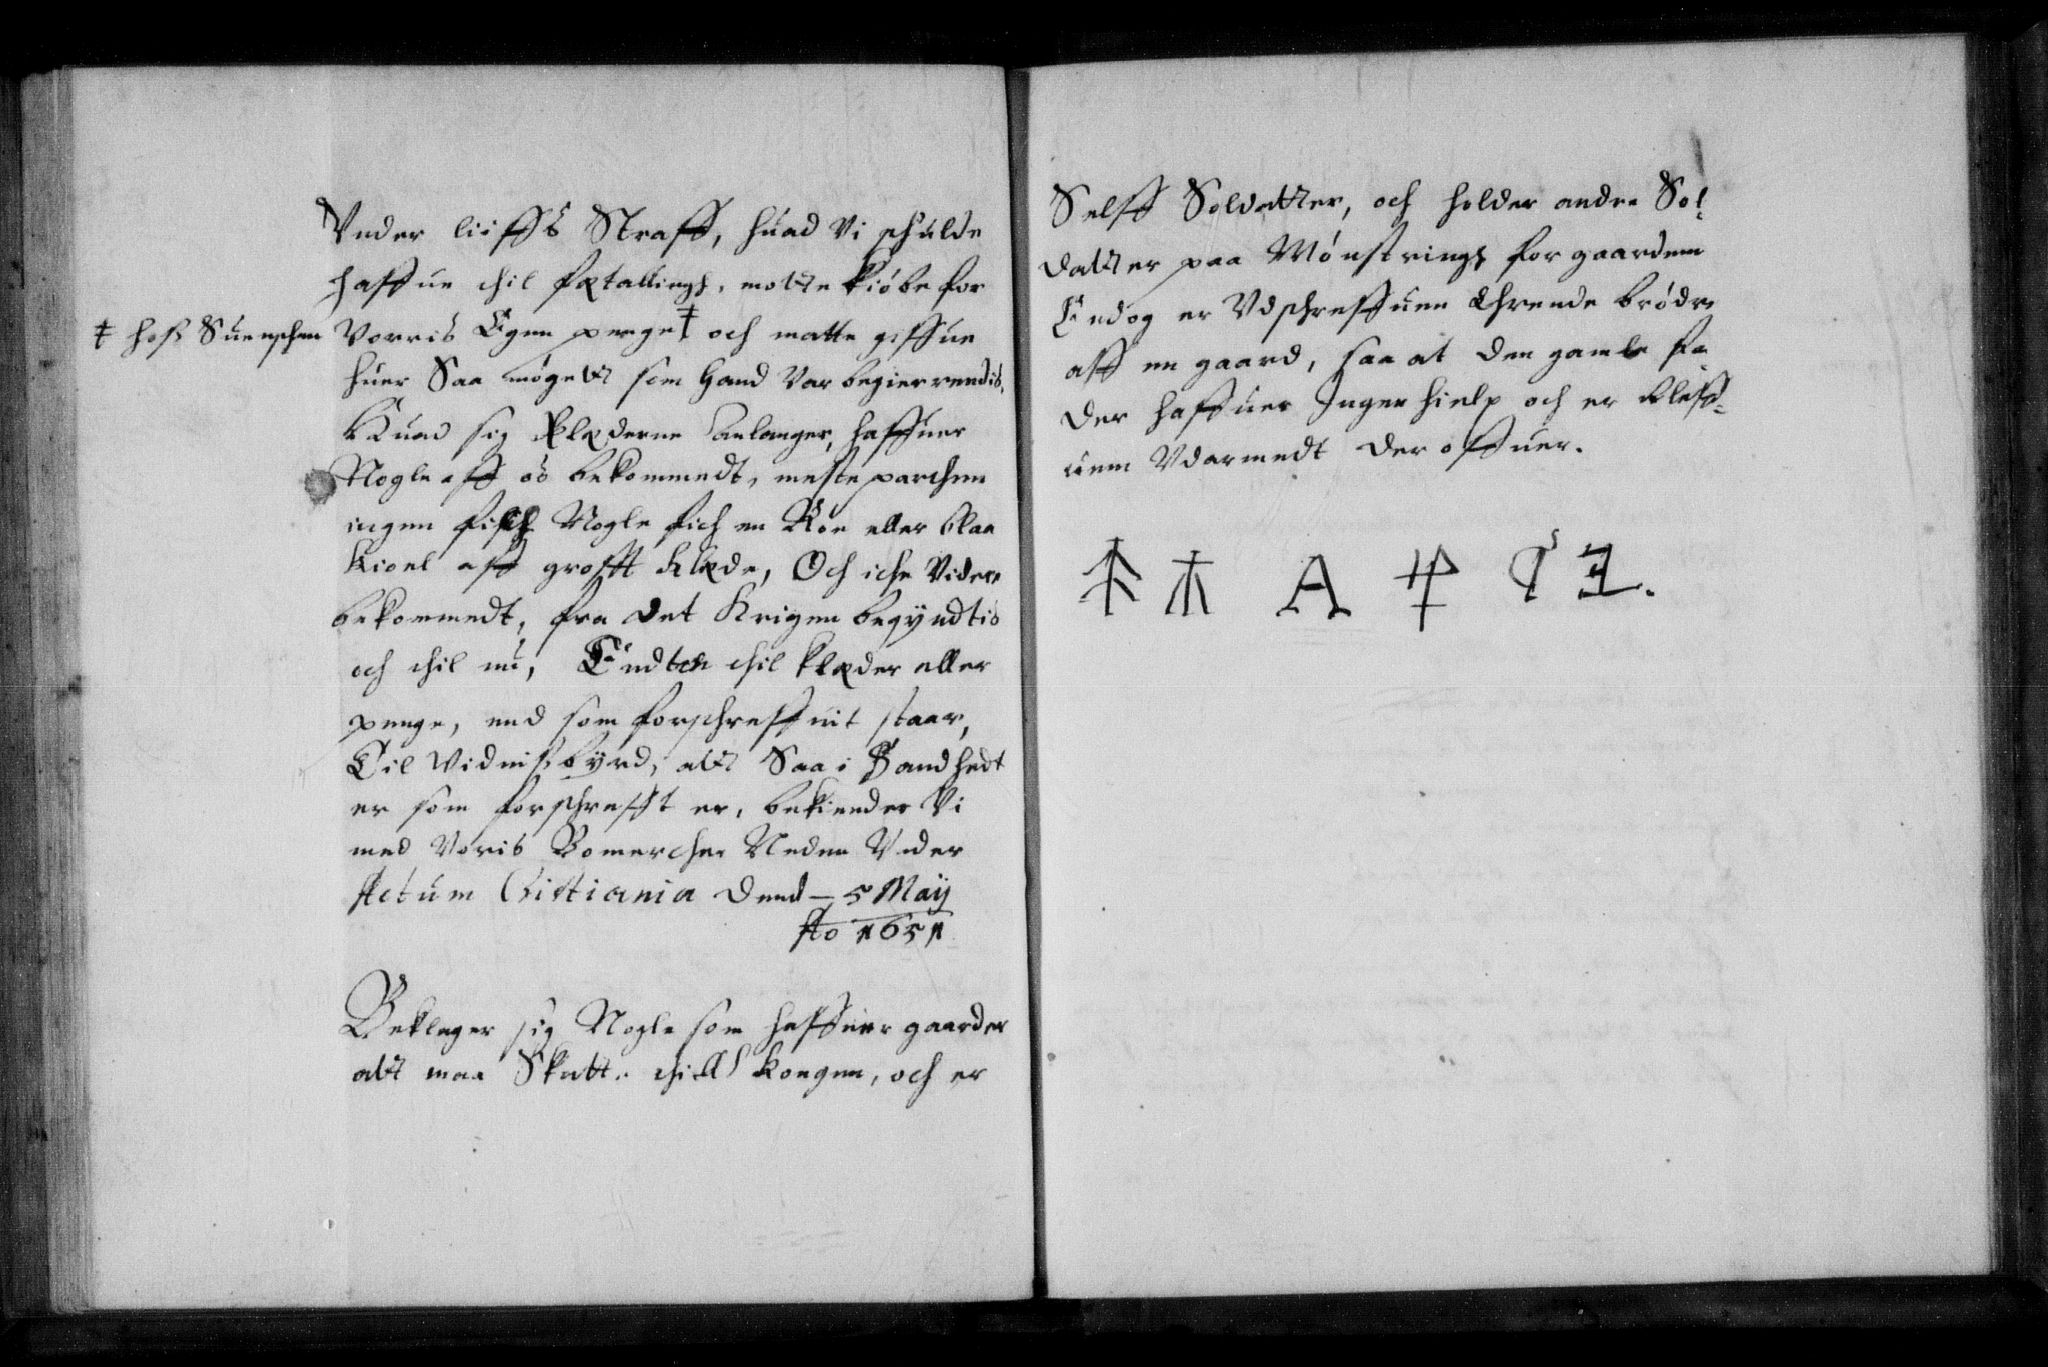 Vnder liiffs Straff, huad Vi schulde
haffue thil fætallings, motte kiöbe for
‡ hoss Suenschen
Vorris Egen penge ‡ och matte giffue
huer Saa møgett som hand Var begierrendis.
Huad sig Klæderne Anlanger, haffuer
Nogle aff os bekommedt, meste parthen
ingen fisch Nogle fich en Röe eller blaa
kioel aff grofft klæde, Och iche Videre
bekommedt, fra det Krigen begyndtis
och thil nu, Endten thil klæder eller
penge, end som forschreffuit staar,
Til Vidnissbyrd, att Saa i Sandhedt
er som forschrefft er, bekiender Vi
med Voris Bomercher Neden Vnder
Actum Christiania Dend 5 Maÿ
Ao 1651
Beklager sig Nogle som haffuer gaarder
att maa Skatte thill Kongen, och er
Selff Soldatter, och holder andre Sol-
datter paa Mönstrings for gaardem
Endog er Vdschreffuen Thrende brödre
aff en gaard, saa at den gamle fa
der haffuer Ingen hielp och er bleff-
uem Vdarmedt der offuer.
A